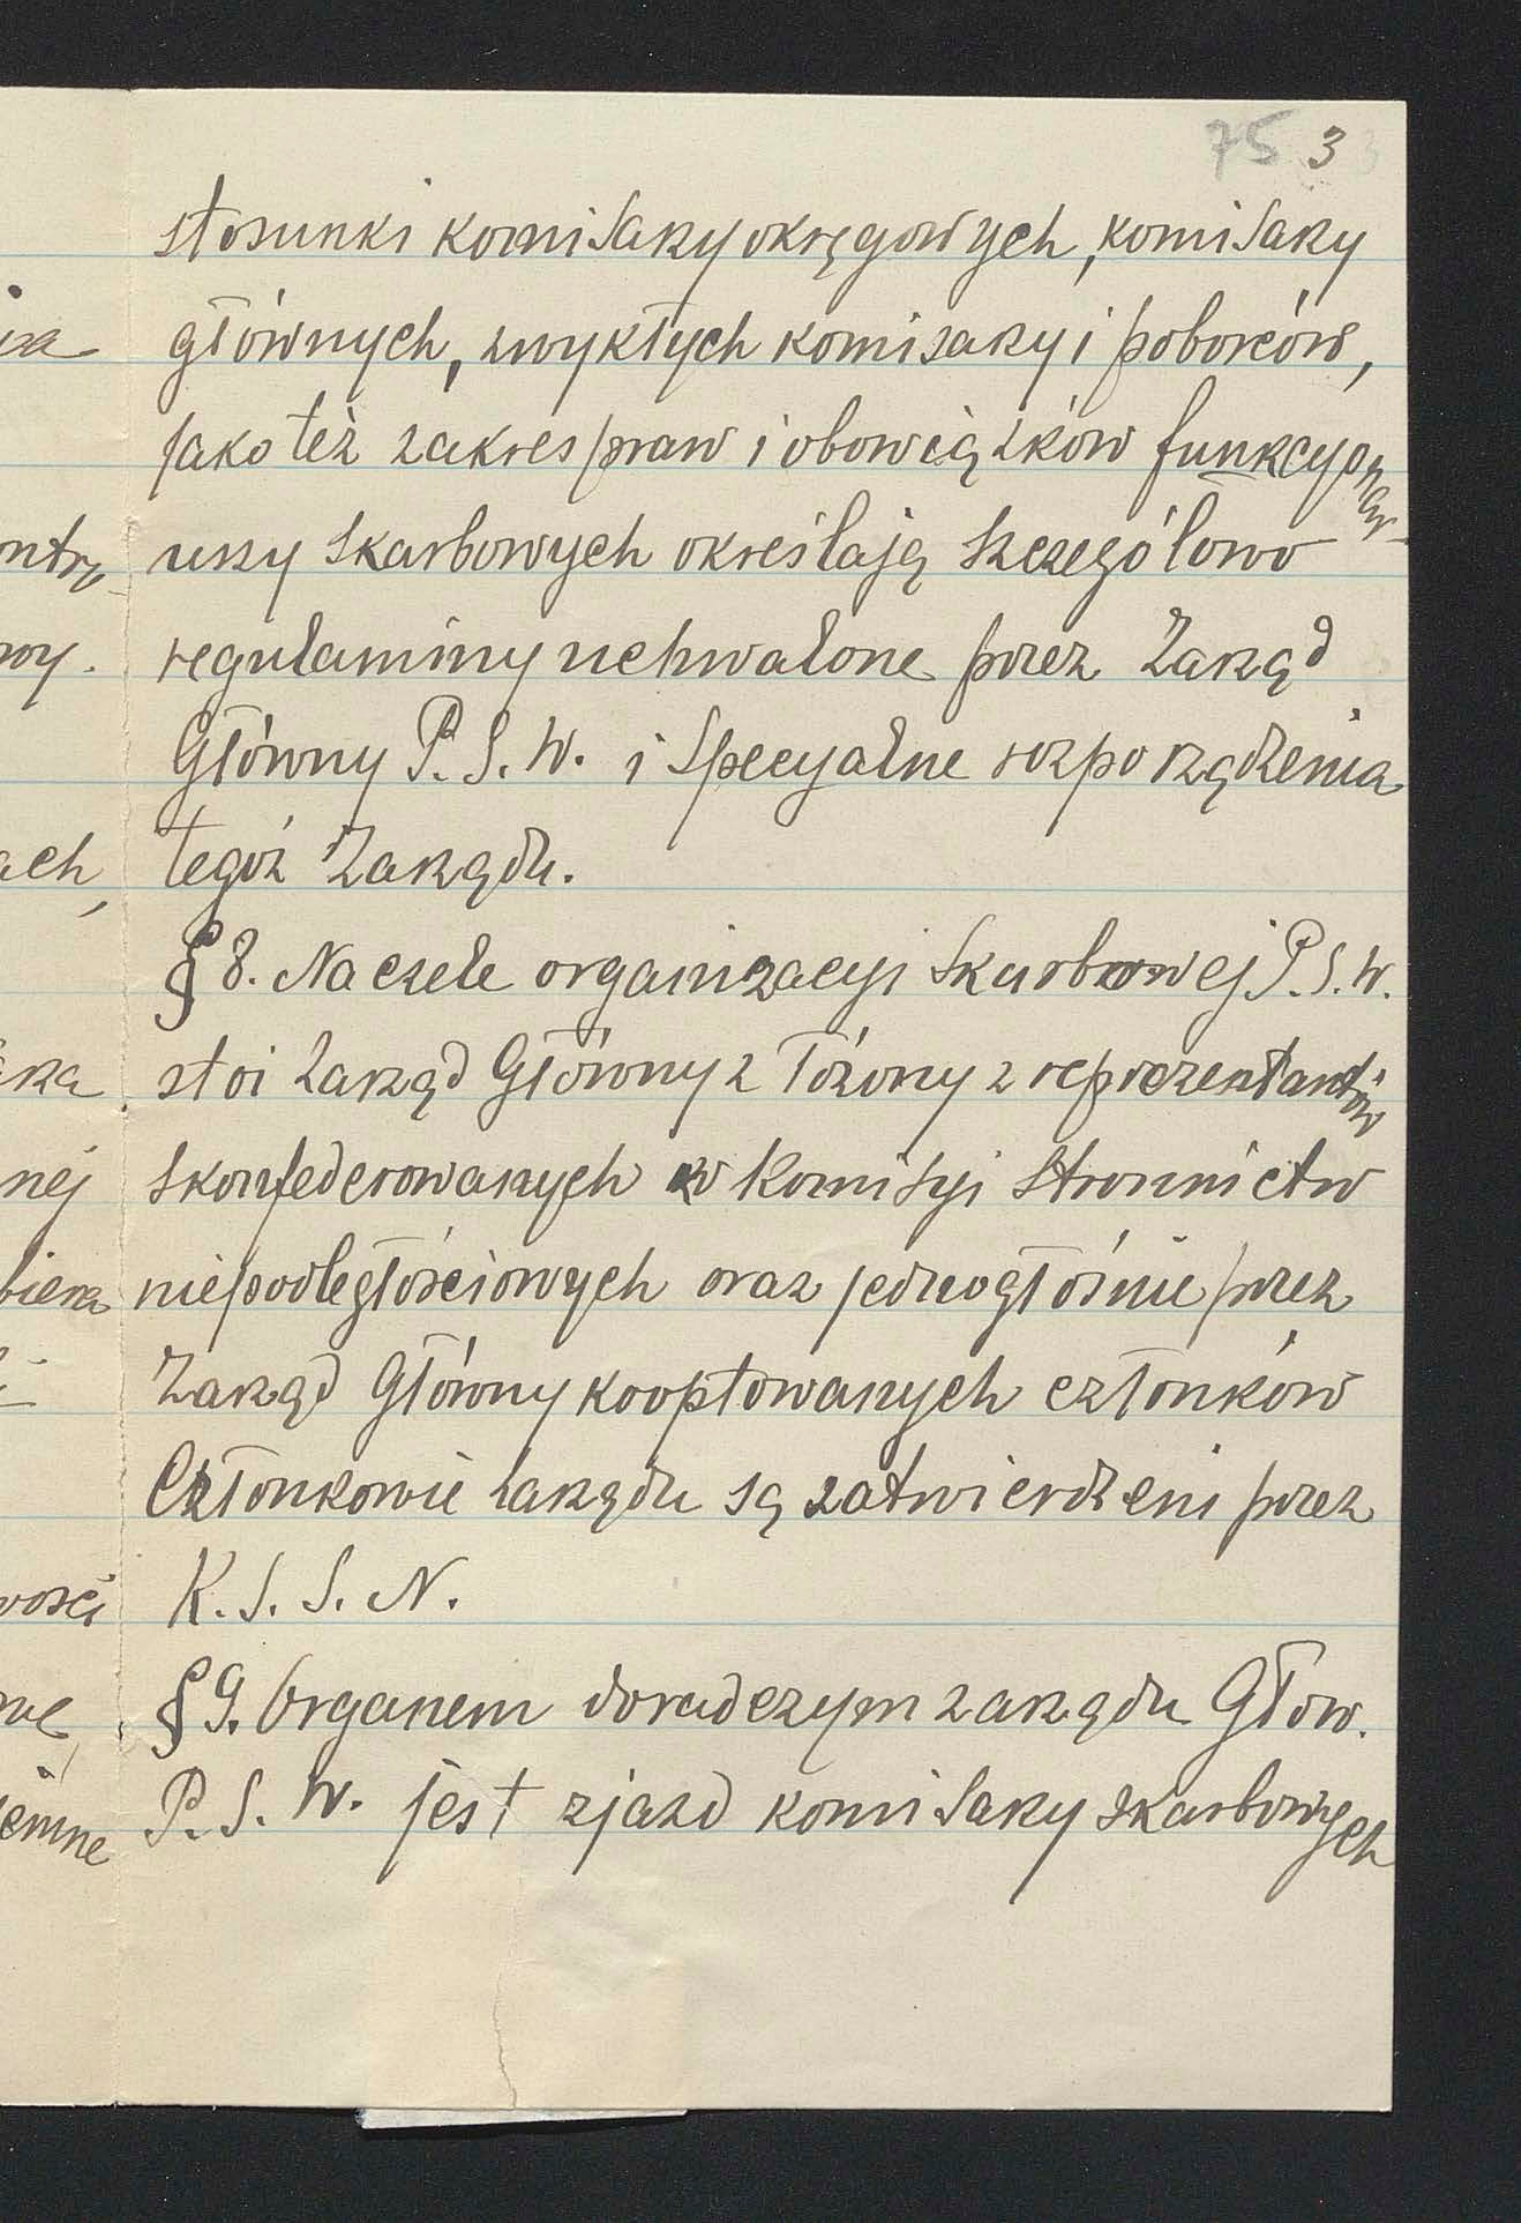 75 3
stosunki komisarzy okręgowych, komisarzy
głównych, zwykłych komisarzy i poborców,
jako też zakres praw i obowiązków funkcyonar-
uszy skarbowych określają szczegółowo
regulaminy uchwalone przez Zarząd
Główny P.S.W. i specyalne rozporządzenia
tegoż Zarządu.
§ 8. Na czele organizacyi skarbowej P.S.W.
stoi Zarząd Główny złożony z reprezentantów
skonfederowanych w Komisyi stronnictw
niepodległościowych oraz jednogłośnie przez
Zarząd Główny kooptowanych członków
Członkowie zarządu są zatwierdzeni przez
K.S.S.N.
§ 9. Organem doradczym zarządu Głów.
P.S.W. jest zjazd komisarzy skarbowych
ntrę
wy.
ach,
nej
biera
wości